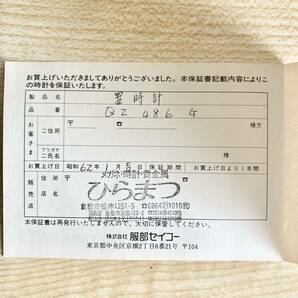 お買上げいただきましてありがとうございました。本保証書記載内容によりこの時計を保証いたします。
製品名 置時計
品番 QZ 486 G
お客さま ご住所 〒 ☎ 様方
フリガナ
ご氏名 様
お買上げ日 昭和 62年 1月 5日 保証期間 お買上げ日より1年間
販売店 メガネ・時計・貴金属
ひらまつ
本保証書は再発行いたしませんので、大切に保管してください。
株式会社 服部セイコー
東京都中央区京橋2丁目6番21号 〒104